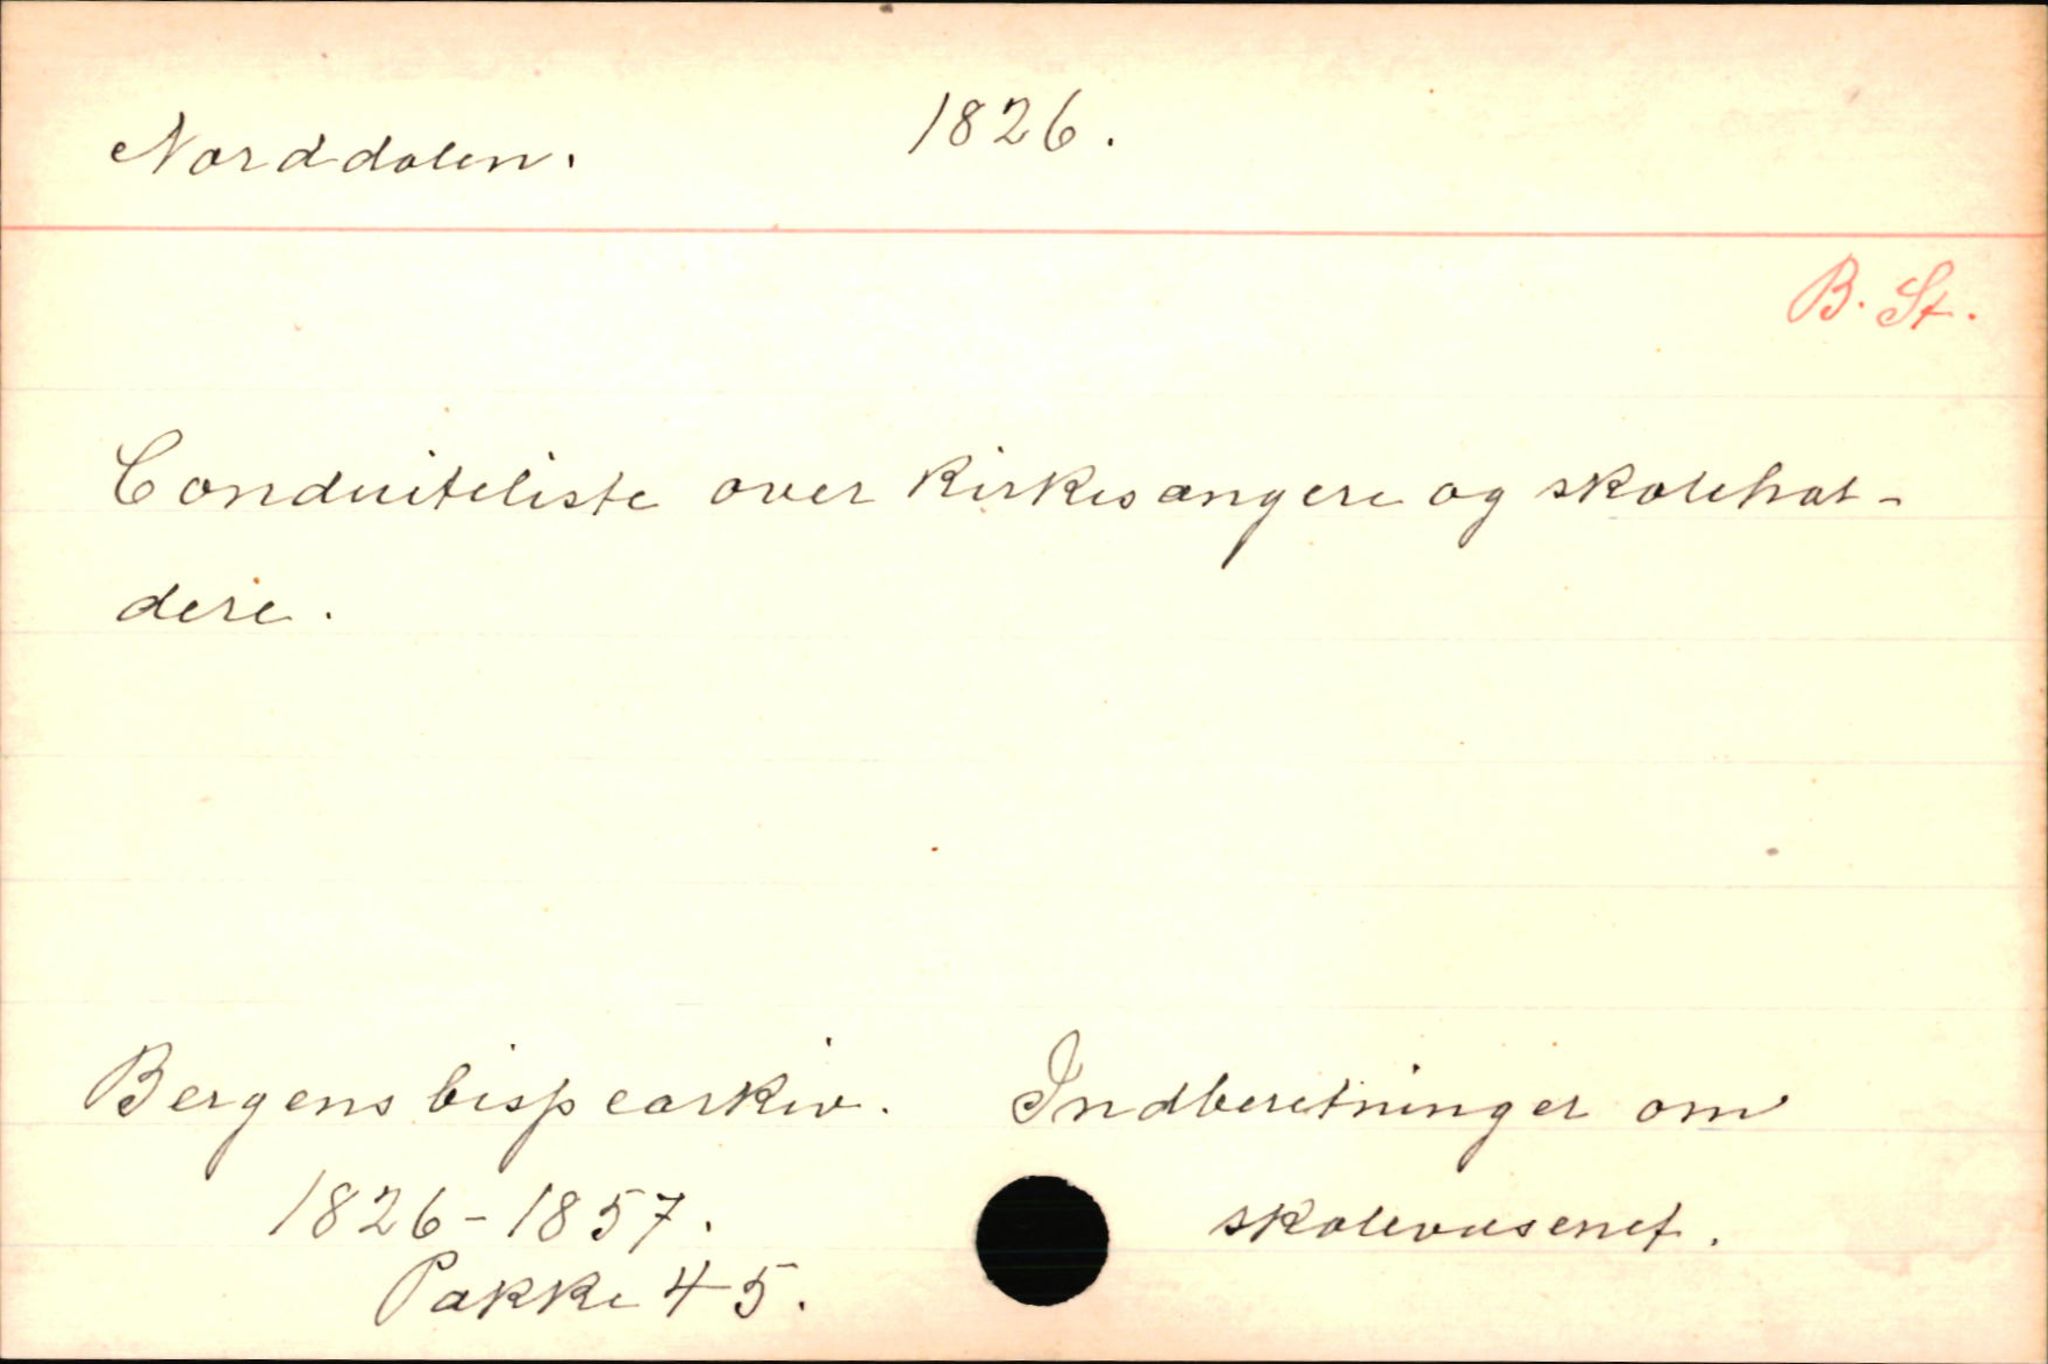 Norddalen. 1826.
B. St.
Conduiteliste over kirkesangere og skolehol-
dere.
Bergens bispearkiv. Indberetninger om
1826-1857. skolevæsenet.
Pakke 45.